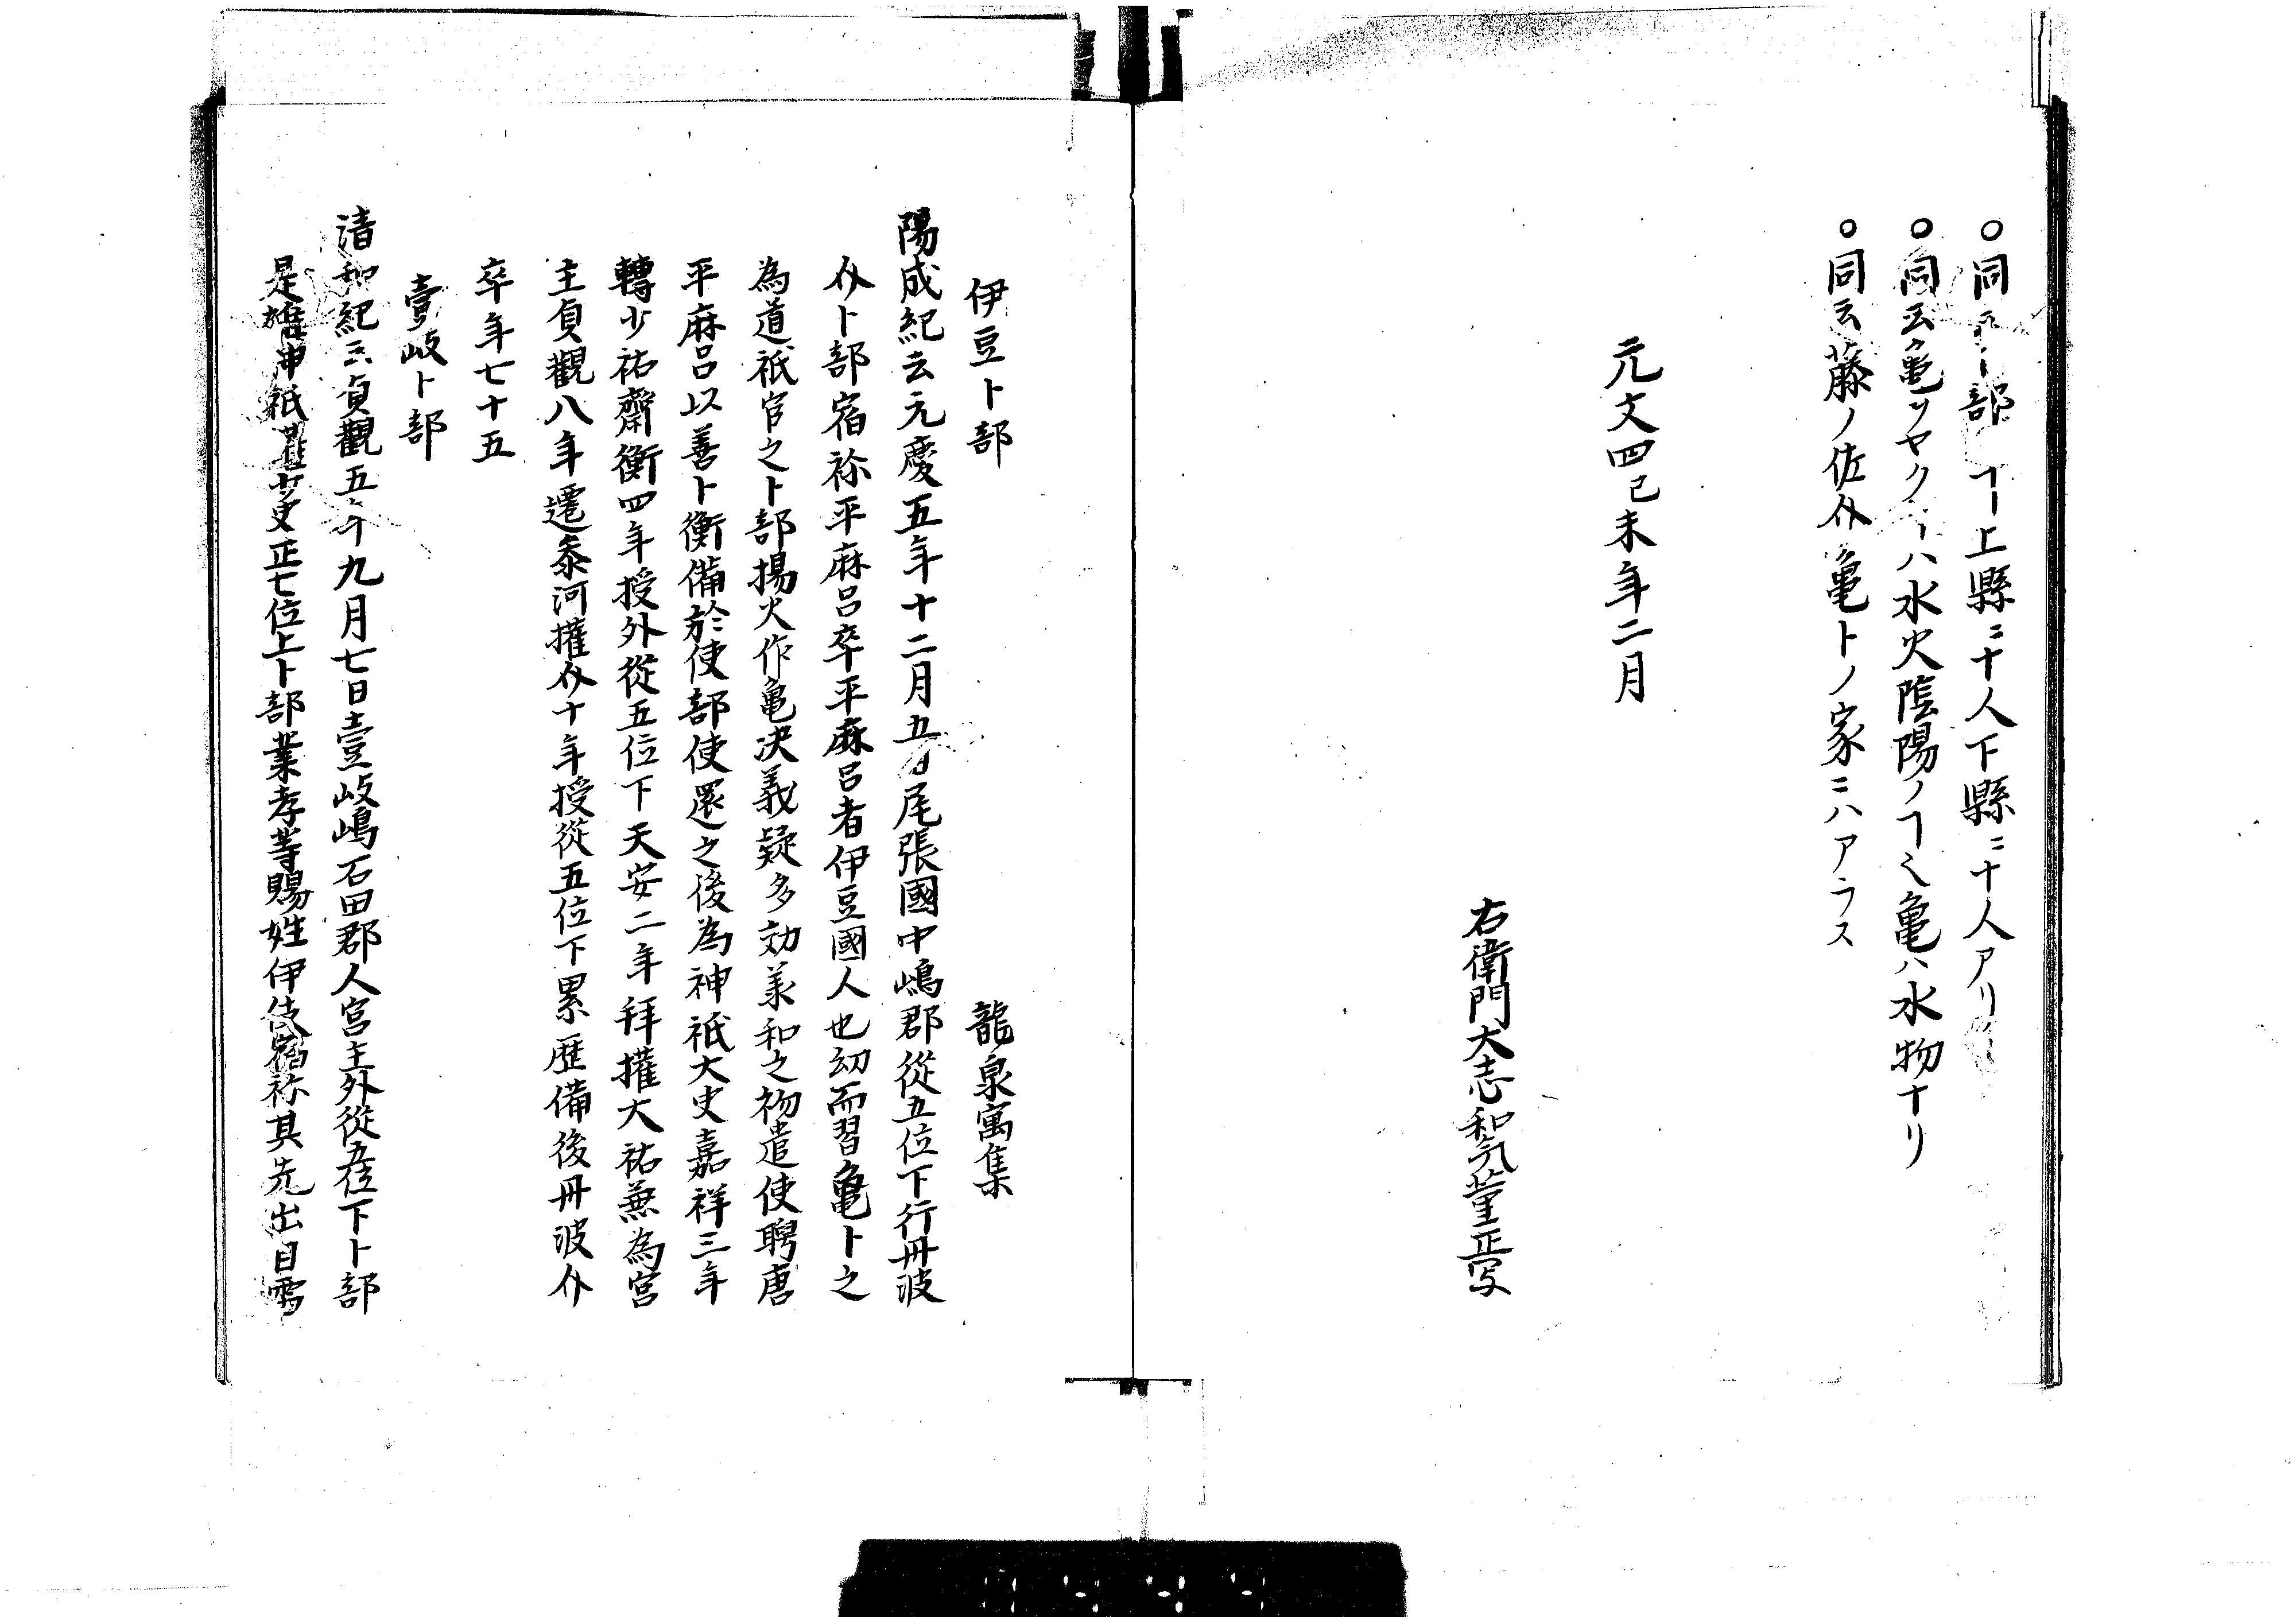 ○同云卜部ヿ上縣ニ十人下縣ニ十人アリ
○同云亀ヲヤクヿハ水火陰陽ノヿミ亀ハ水物ナリ
○同云藤ノ佐㐲亀卜ノ家ニハアラス
元文四己未年二月
右衛門大志和気菫正写
伊豆卜部 龍泉寓集
陽成紀云元慶五年十二月五日尾張國中嶋郡從五位下行丹波
介卜部宿祢平麻呂卒平麻呂者伊豆國人也幼而習亀卜之
為道祇官之卜部揚火作亀决義疑多効羕和之初遣使聘唐
平麻呂以善卜衡備於使部使還之後為神祇大史嘉祥三年
轉少祐齋衡四年授外從五位下天安二年拜權大祐兼為宮
主貞觀八年遷叅河權介十年授從五位下累歴備後丹波介
卒年七十五
壹岐卜部
清和紀云貞觀五年九月七日壹岐嶋石田郡人宮主外從五位下卜部
是雄神祇權少史正七位上卜部業孝等賜姓伊伎宿祢其先出自雷